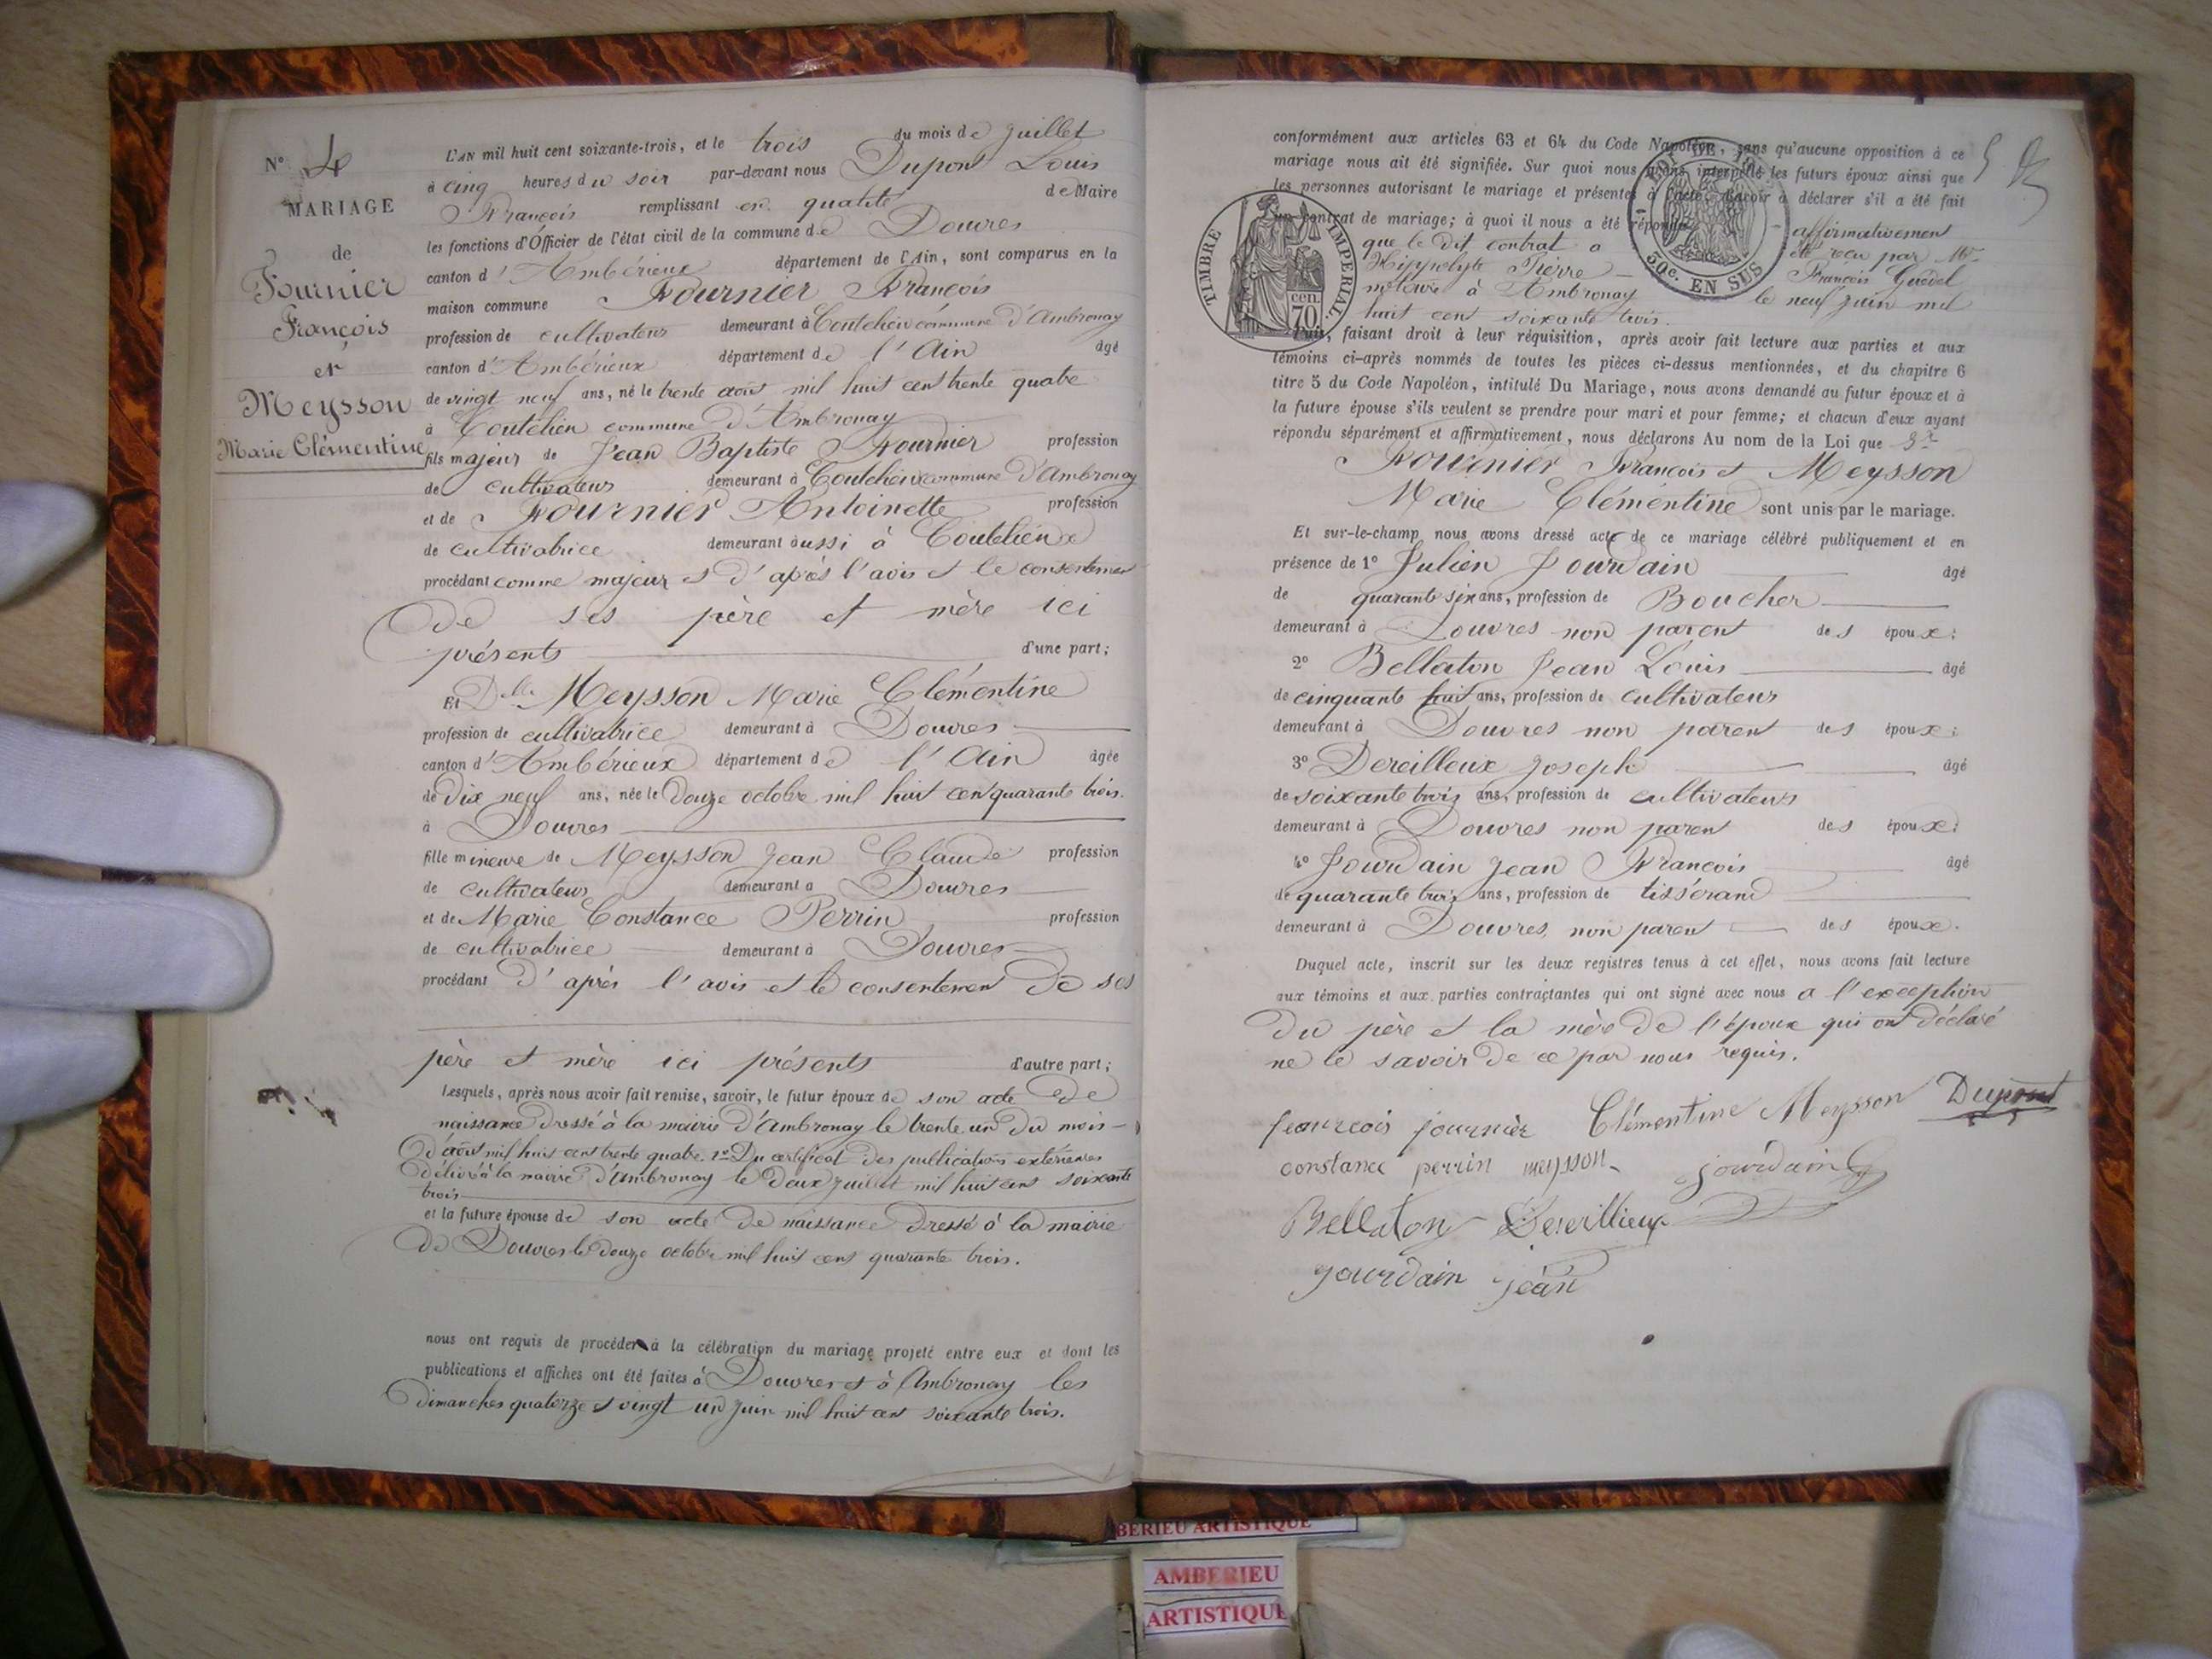 N° 4
MARIAGE
de
Fournier
François
et
Meysson
Marie Clémentine
L'AN mil huit cent soixante-trois, et le trois du mois de juillet
à cinq heures du soir par-devant nous Dupont Louis
François remplissant en qualité de Maire
les fonctions d'Officier de l'état civil de la commune de Douvres
canton d'Ambérieux département de l'Ain, sont comparus en la
maison commune Fournier François
profession de cultivateur demeurant à Coutelieu commune d'Ambronay
canton d'Ambérieux département de l'Ain âgé
de vingt neuf ans, né le trente août mil huit cent trente quatre
à Coutelieu commune d'Ambronay
fils majeur de Jean Baptiste Fournier profession
de cultivateur demeurant à Coutelieu commune d'Ambronay
et de Fournier Antoinette profession
de cultivatrice demeurant aussi à Coutelieu
procédant comme majeur et d'après l'avis et le consentement
de ses père et mère ici
présents d'une part;
Et Dlle Meysson Marie Clémentine
profession de cultivatrice demeurant à Douvres
canton d'Ambérieux département de l'Ain âgée
de dix neuf ans, née le douze octobre mil huit cent quarante trois.
à Douvres
fille mineure de Meysson Jean Claude profession
de cultivateur demeurant à Douvres
et de Marie Constance Perrin profession
de cultivatrice demeurant à Douvres
procédant d'après l'avis et le consentement de ses
père et mère ici présents d'autre part;
Lesquels, après nous avoir fait remise, savoir, le futur époux de son acte de
naissance dressé à la mairie d'Ambronay le trente un du mois
d'août mil huit cent trente quatre. 2° Du certificat des publications extérieures
délivré à la mairie d'Ambronay le deux juillet mil huit cent soixante
trois
et la future épouse de son acte de naissance dressé à la mairie
de Douvres le douze octobre mil huit cent quarante trois.
nous ont requis de procéder à la célébration du mariage projeté entre eux et dont les
publications et affiches ont été faites à Douvres et à Ambronay les
dimanches quatorze et vingt un juin mil huit cent soixante trois.
conformément aux articles 63 et 64 du Code Napoléon, sans qu'aucune opposition à ce
mariage nous ait été signifiée. Sur quoi nous avons interpellé les futurs époux ainsi que
les personnes autorisant le mariage et présentes à l'acte, d'avoir à déclarer s'il a été fait
un contrat de mariage; à quoi il nous a été répondu affirmativement
que le dit contrat a été reçu par Me
Hippolyte Pierre François
notaire à Ambronay le neuf juin mil
huit cent soixante trois.
Puis, faisant droit à leur réquisition, après avoir fait lecture aux parties et aux
témoins ci-après nommés de toutes les pièces ci-dessus mentionnées, et du chapitre 6
titre 5 du Code Napoléon, intitulé Du Mariage, nous avons demandé au futur époux et à
la future épouse s'ils veulent se prendre pour mari et pour femme; et chacun d'eux ayant
répondu séparément et affirmativement, nous déclarons Au nom de la Loi que
Fournier François et Meysson
Marie Clémentine sont unis par le mariage.
Et sur-le-champ nous avons dressé acte de ce mariage célébré publiquement et en
présence de 1° Julien Jourdain âgé
de quarante six ans, profession de Boucher
demeurant à Douvres non parent des époux;
2° Bellaton Jean Louis âgé
de cinquante huit ans, profession de cultivateur
demeurant à Douvres non parent des époux;
3° Dereilleux Joseph âgé
de soixante trois ans, profession de cultivateur
demeurant à Douvres non parent des époux;
4° Jourdain Jean François âgé
de quarante trois ans, profession de tisserand
demeurant à Douvres, non parent des époux.
Duquel acte, inscrit sur les deux registres tenus à cet effet, nous avons fait lecture
aux témoins et aux parties contractantes qui ont signé avec nous à l'exception
du père et la mère de l'époux qui ont déclaré
ne le savoir de ce par nous requis.
françois fournier Clémentine Meysson Dupont
constance perrin meysson jourdain
Bellaton Dereillieux
jourdain jean
TIMBRE IMPERIAL
70 cen.
50c. EN SUS
BERIEU ARTISTIQUE
AMBERIEU
ARTISTIQUE